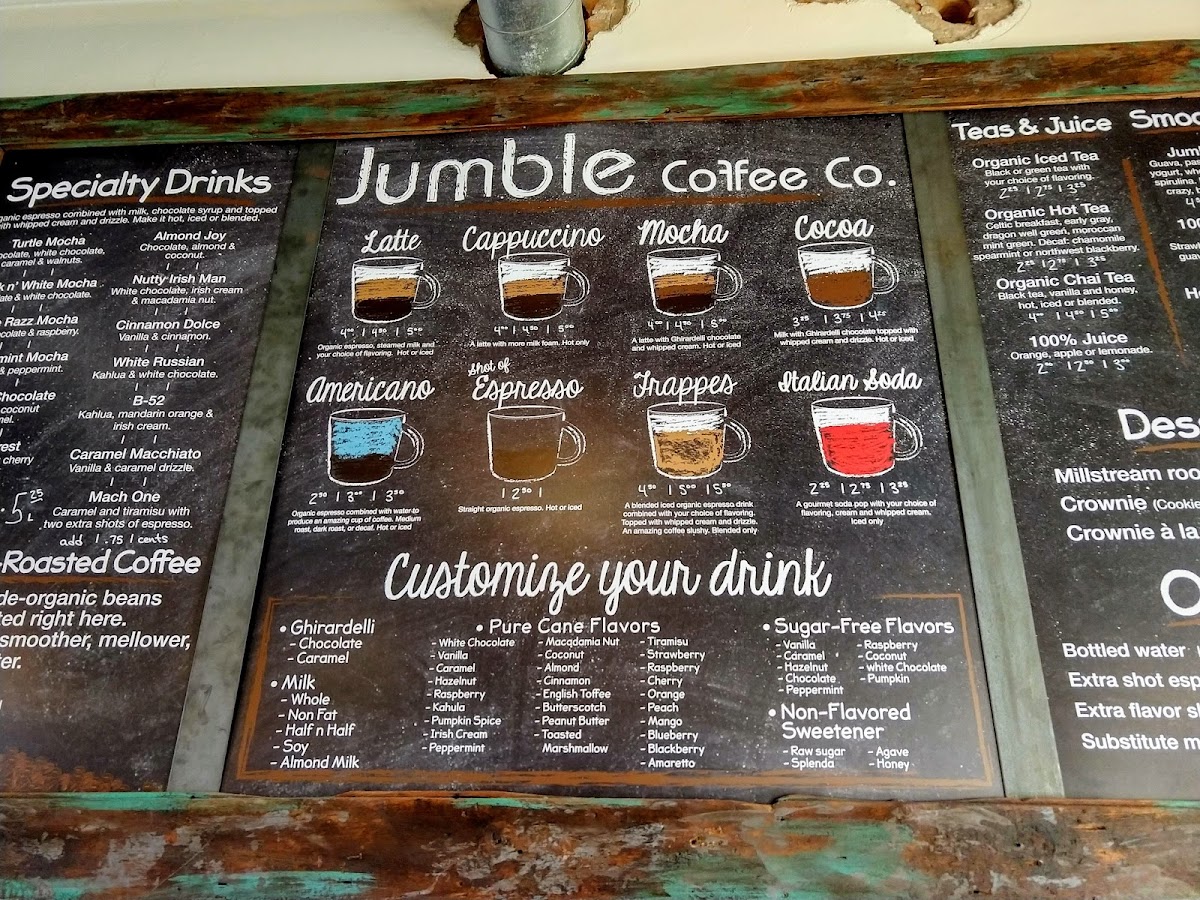 Specialty Drinks
organic espresso combined with milk, chocolate syrup and topped
with whipped cream and drizzle. Make it hot, iced or blended.
Turtle Mocha
chocolate, white chocolate,
caramel & walnuts.
n' White Mocha
& white chocolate.
Razz Mocha
& raspberry.
Mocha
& peppermint.
Chocolate
coconut
cherry
5.25
Almond Joy
Chocolate, almond &
coconut.
Nutty Irish Man
White chocolate, irish cream
& macadamia nut.
Cinnamon Dolce
Vanilla & cinnamon.
White Russian
Kahlua & white chocolate.
B-52
Kahlua, mandarin orange &
irish cream.
Caramel Macchiato
Vanilla & caramel drizzle.
Mach One
Caramel and tiramisu with
two extra shots of espresso.
add | .75 | cents
-Roasted Coffee
-organic beans
right here.
smoother, mellower,
Jumble Coffee Co.
Latte
4.00 | 4.50 | 5.00
Organic espresso, steamed milk and
your choice of flavoring. Hot or iced
Cappuccino
4.00 | 4.50 | 5.00
A latte with more milk foam. Hot only
Mocha
4.00 | 4.50 | 5.00
A latte with Ghirardelli chocolate
and whipped cream. Hot or iced
Cocoa
3.25 | 3.75 | 4.25
Milk with Ghirardelli chocolate topped with
whipped cream and drizzle. Hot or iced
Americano
2.50 | 3.00 | 3.50
Organic espresso combined with water to
produce an amazing cup of coffee. Medium
roast, dark roast, or decaf. Hot or iced
Shot of
Espresso
| 2.50 |
Straight organic espresso. Hot or iced
Frappes
4.50 | 5.00 | 5.50
A blended iced organic espresso drink
combined with your choice of flavoring.
Topped with whipped cream and drizzle.
An amazing coffee slushy. Blended only
Italian Soda
2.25 | 2.75 | 3.25
A gourmet soda pop with your choice of
flavoring, cream and whipped cream.
Iced only
Customize your drink
• Ghirardelli
- Chocolate
- Caramel
• Milk
- Whole
- Non Fat
- Half n Half
- Soy
- Almond Milk
• Pure Cane Flavors
- White Chocolate
- Vanilla
- Caramel
- Hazelnut
- Raspberry
- Kahula
- Pumpkin Spice
- Irish Cream
- Peppermint
- Macadamia Nut
- Coconut
- Almond
- Cinnamon
- English Toffee
- Butterscotch
- Peanut Butter
- Toasted
Marshmallow
- Tiramisu
- Strawberry
- Raspberry
- Cherry
- Orange
- Peach
- Mango
- Blueberry
- Blackberry
- Amaretto
• Sugar-Free Flavors
- Vanilla
- Caramel
- Hazelnut
- Chocolate
- Peppermint
- Raspberry
- Coconut
- white Chocolate
- Pumpkin
• Non-Flavored
Sweetener
- Raw sugar
- Splenda
- Agave
- Honey
Teas & Juice
Organic Iced Tea
Black or green tea with
your choice of flavoring.
2.25 | 2.75 | 3.25
Organic Hot Tea
Celtic breakfast, early gray,
dragon well green, moroccan
mint green. Decaf: chamomile
spearmint or northwest blackberry.
2.25 | 2.75 | 3.25
Organic Chai Tea
Black tea, vanilla and honey,
hot, iced or blended.
4.00 | 4.50 | 5.00
100% Juice
Orange, apple or lemonade.
2.00 | 2.50 | 3.00
Guava,
yogurt,
spirulina.
crazy,
Millstream
Crownie (Cookie
Crownie à la
Bottled water
Extra shot
Extra flavor
Substitute